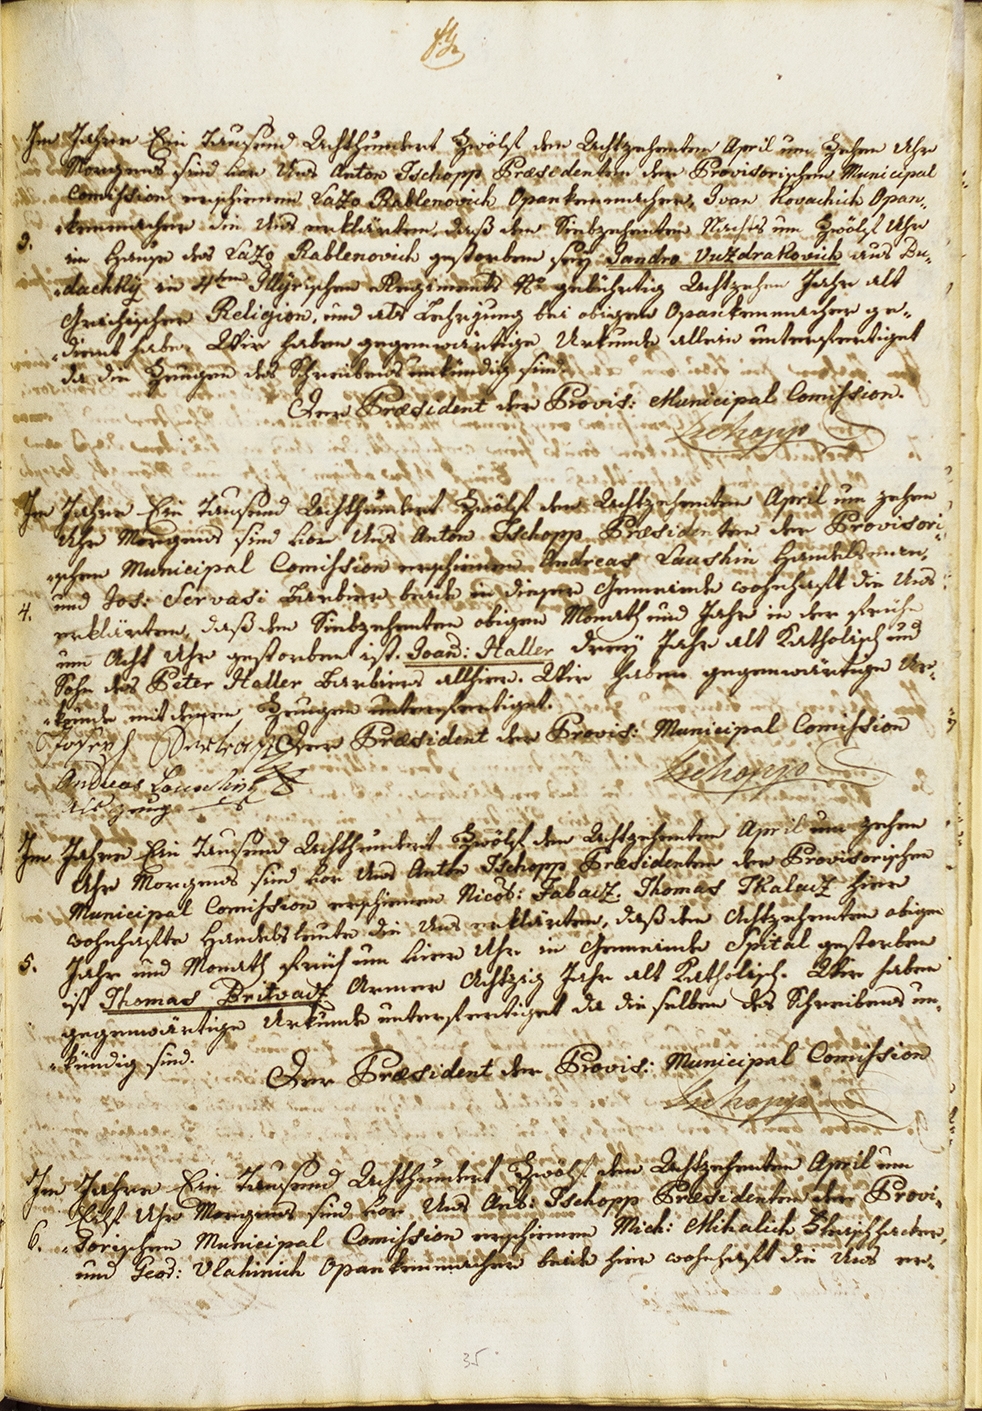 Im Jahre Ein Tausend Achthundert Zwölf den Achtzehenten April um Zehen Uhr
Morgens sind vor Uns Anton Tschopp Præsidenten der Provisorischen Municipal
Comission erschienen Lazo Rablenovich Opankenmacher, Ivan Kovachich Opan„
„kenmacher die Uns erklärten, daß den Siebzehenten Nachts um Zwölf Uhr
3. im Hause des Lazo Rablenovich gestorben sey Sandro Vuzdrakovich aus Du„
„dachkly in 4ten Illÿrischen Regiments No gebührtig Achtzehen Jahr alt
Grichischer Religion, und als Lehrjung bei obigen Opankenmacher ge„
„dient habe. Wir haben gegenwärtige Urkunde allein unterfertiget
da die Zeugen des Schreibens unkündig sind.
Der Præsident der Provis: Municipal Comission.
Tschopp
Im Jahre Ein Tausend Achthundert Zwölf den Achtzehenten April um zehen
Uhr Morgens sind vor Uns Anton Tschopp Præsidenten der Provisori„
„schen Municipal Comission erschienen Andreas Laushin Handelsman,
und Jos: Servasi Barbier beide in dieser Gemeinde wohnhaft die Uns
4. erklärten, daß den Siebzehenten obigen Monath und Jahr in der Frühe
um Acht Uhr gestorben ist. Joan: Haller drey Jahr alt Katholisch und
Sohn des Peter Haller Barbiers allhier. Wir haben gegenwärtige Ur„
„kunde mit denen Zeugen unterfertiget.
Joseph Servasi Der Præsident der Provis: Municipal Comission
Tschopp
Andreas Lauschin
als zeug
Im Jahre Ein Tausend Achthundert Zwölf den Achtzehenten April um zehen
Uhr Morgens sind vor Uns Anton Tschopp Præsidenten der Provisorischen
Municipal Comission erschienen Nicob: Fabacz Thomas Tkalacz hier
wohnhafte Handelsleute die Uns erklärten, daß den Achtzehenten obigen
5. Jahr und Monath früh um vier Uhr in Gemeinde Spital gestorben
ist Thomas Britvacz Armer Achtzig Jahr alt Katholisch. Wir haben
gegenwärtige Urkunde unterfertiget da dieselben des Schreibens un„
„kündig sind.
Der Præsident der Provis: Municipal Comission
Tschopp
Im Jahre Ein Tausend Achthundert Zwölf den Achtzehenten April um
Eilf Uhr Morgens sind vor Uns Ant: Tschopp Præsidenten der Provi„
6. „sorischen Municipal Comission erschienen Mich: Mihalich Fleischhacker,
und Geor: Vlahinich Opankenmacher beide hier wohnhaft die Uns er„
35